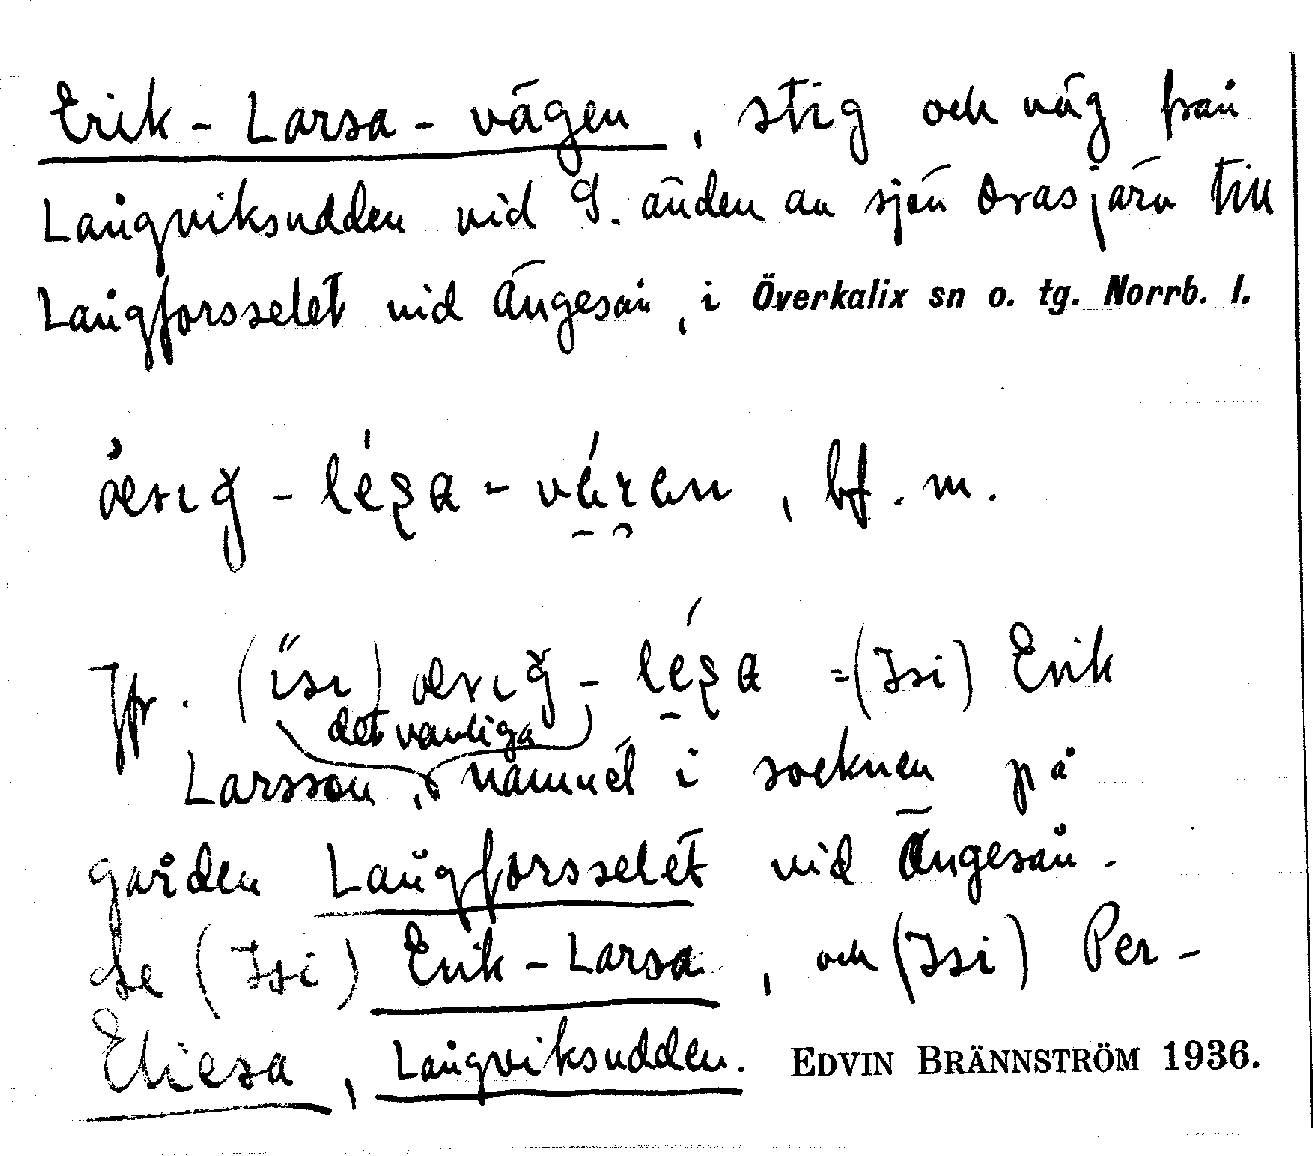 Erik-Larsa-vägen, stig och väg från
Långviksudden vid S. änden av sjön Orasjärv till
Långforsselet vid Ängesån, i Överkalix sn o. tg. Norrb. l.
bf. m.
Jfr. (ïsı) ærıǥ-léʂa =(Isi) Erik
det vanliga
Larsson, namnet i socknen på
gården Långforsselet vid Ängesån.
Se (Isi) Erik-Larsa, och (Isi) Per-
Eliesa, Långviksudden. EDVIN BRÄNNSTRÖM 1936.